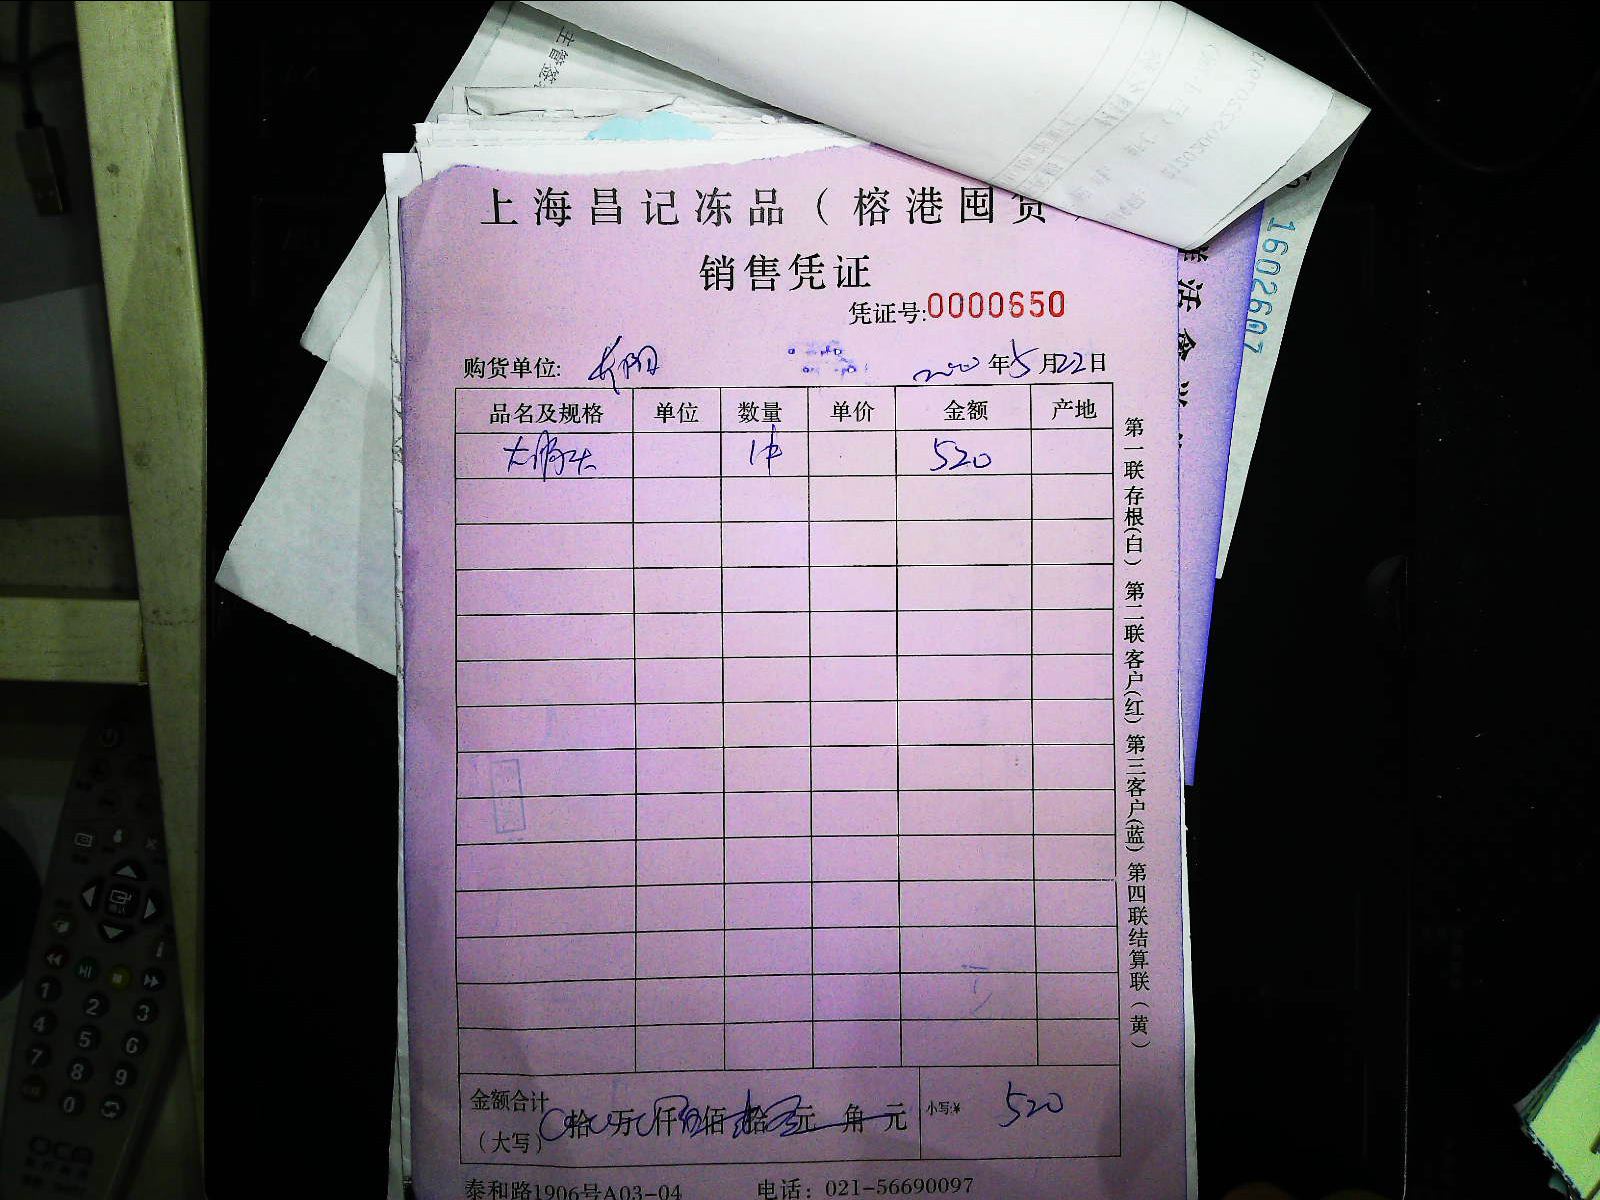 上海昌记冻品（榕港囤货）
销售凭证
凭证号:0000650
购货单位: 年5月22日
品名及规格 单位 数量 单价 金额 产地
1件 520
金额合计
（大写） 拾 万 仟 佰 拾 元 角 元 小写:¥ 520
泰和路1906号A03-04 电话：021-56690097
第一联存根(白) 第二联客户(红) 第三客户(蓝) 第四联结算联(黄)
1602607
主管签
1
2
3
4
5
6
7
8
9
0
OCN